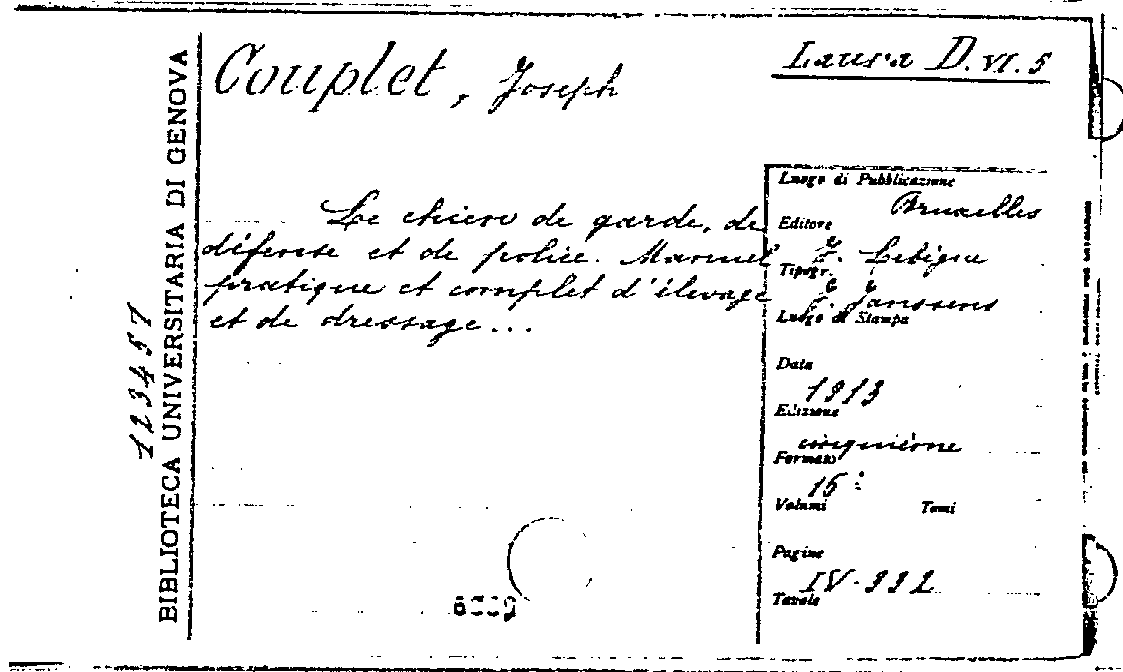 Couplet, Joseph
Laura D. VI. 5
BIBLIOTECA UNIVERSITARIA DI GENOVA
123457
Le chien de garde, de
défense et de police. Manuel
pratique et complet d'élevage
et de dressage...
Luogo di Pubblicazione
Bruxelles
Editore
J. Lebègue
Tipogr.
J. Janssens
Luogo di Stampa
Data
1913
Edizione
cinquième
Formato
16:
Volumi Tomi
Pagine
IV-332
Tavole